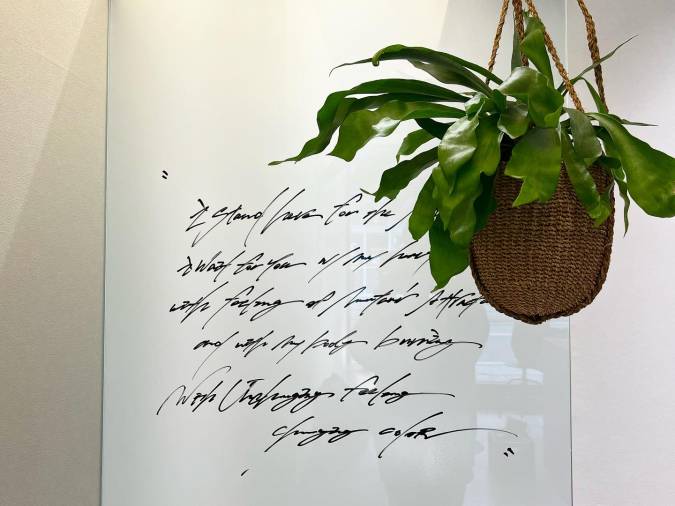 "
i stand here for the
i wait for you w/ my
with feeling of
and with my body burning
With Unchanging feeling
changing color "